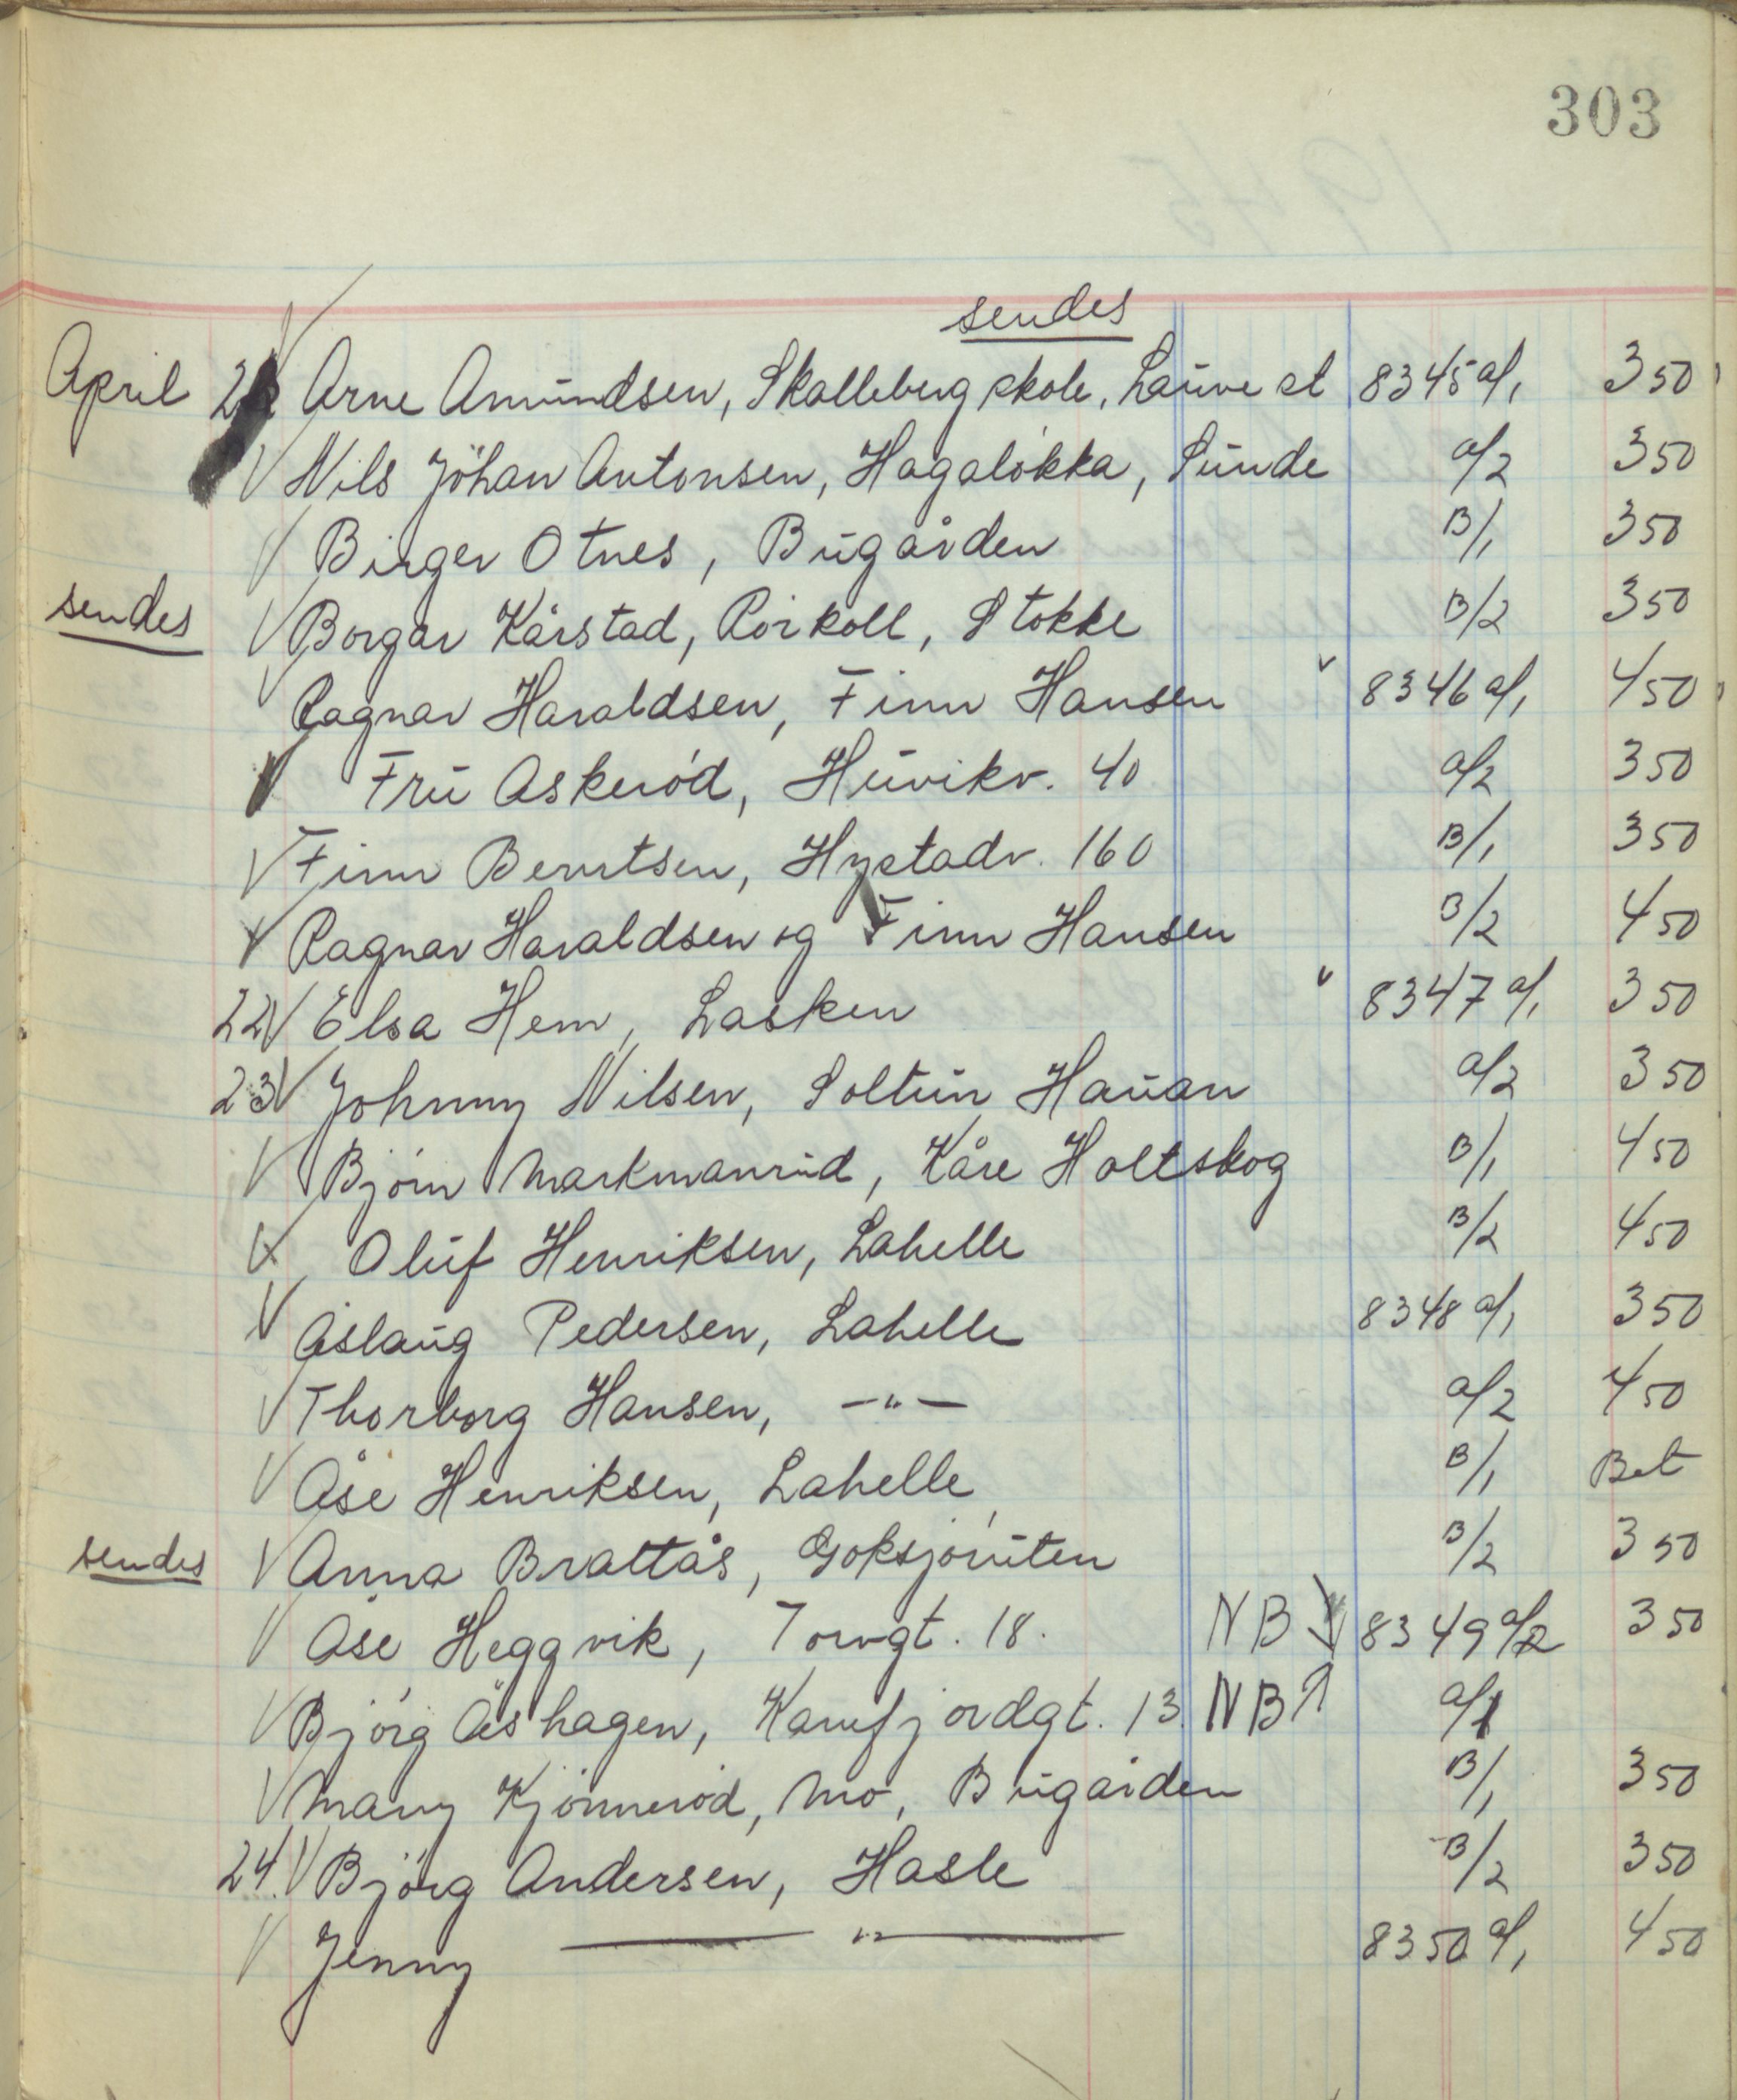 303
sendes
April 21 Arne Amundsen, Skalleberg skole, Lauve st 8345 a/1 350
Nils Johan Antonsen, Hagaløkka, Sunde a/2 350
Birger Otnes, Bugården B/1 350
sendes Borgar Kårstad, Rørkoll, Stokke B/2 350
Ragnar Haraldsen, Finn Hansen 8346 a/1 450
Fru Askerød, Huvikv. 40 a/2 350
Finn Berntsen, Hystadv. 160 B/1 350
Ragnar Haraldsen og Finn Hansen B/2 450
22 Elsa Hem, Lasken 8347 a/1 350
23 Johnny Nilsen, Soltun Hauan a/2 350
Bjørn Markmanrud, Kåre Holtskog B/1 450
Oluf Henriksen, Lahelle B/2 450
Åslaug Pedersen, Lahelle 8348 a/1 350
Thorborg Hansen, —"— a/2 450
Åse Henriksen, Lahelle B/1 Bet
sendes Anna Brattås, Goksjøruten B/2 350
Åse Heggvik, Torvgt. 18. NB 8349 a/2 350
Bjørg Åshagen, Kamfjordgt. 13. NB a/1
Mary Kjønnerød, Mo, Bugården B/1 350
24. Bjørg Andersen, Hasle B/2 350
Jenny —"— 8350 a/1 450